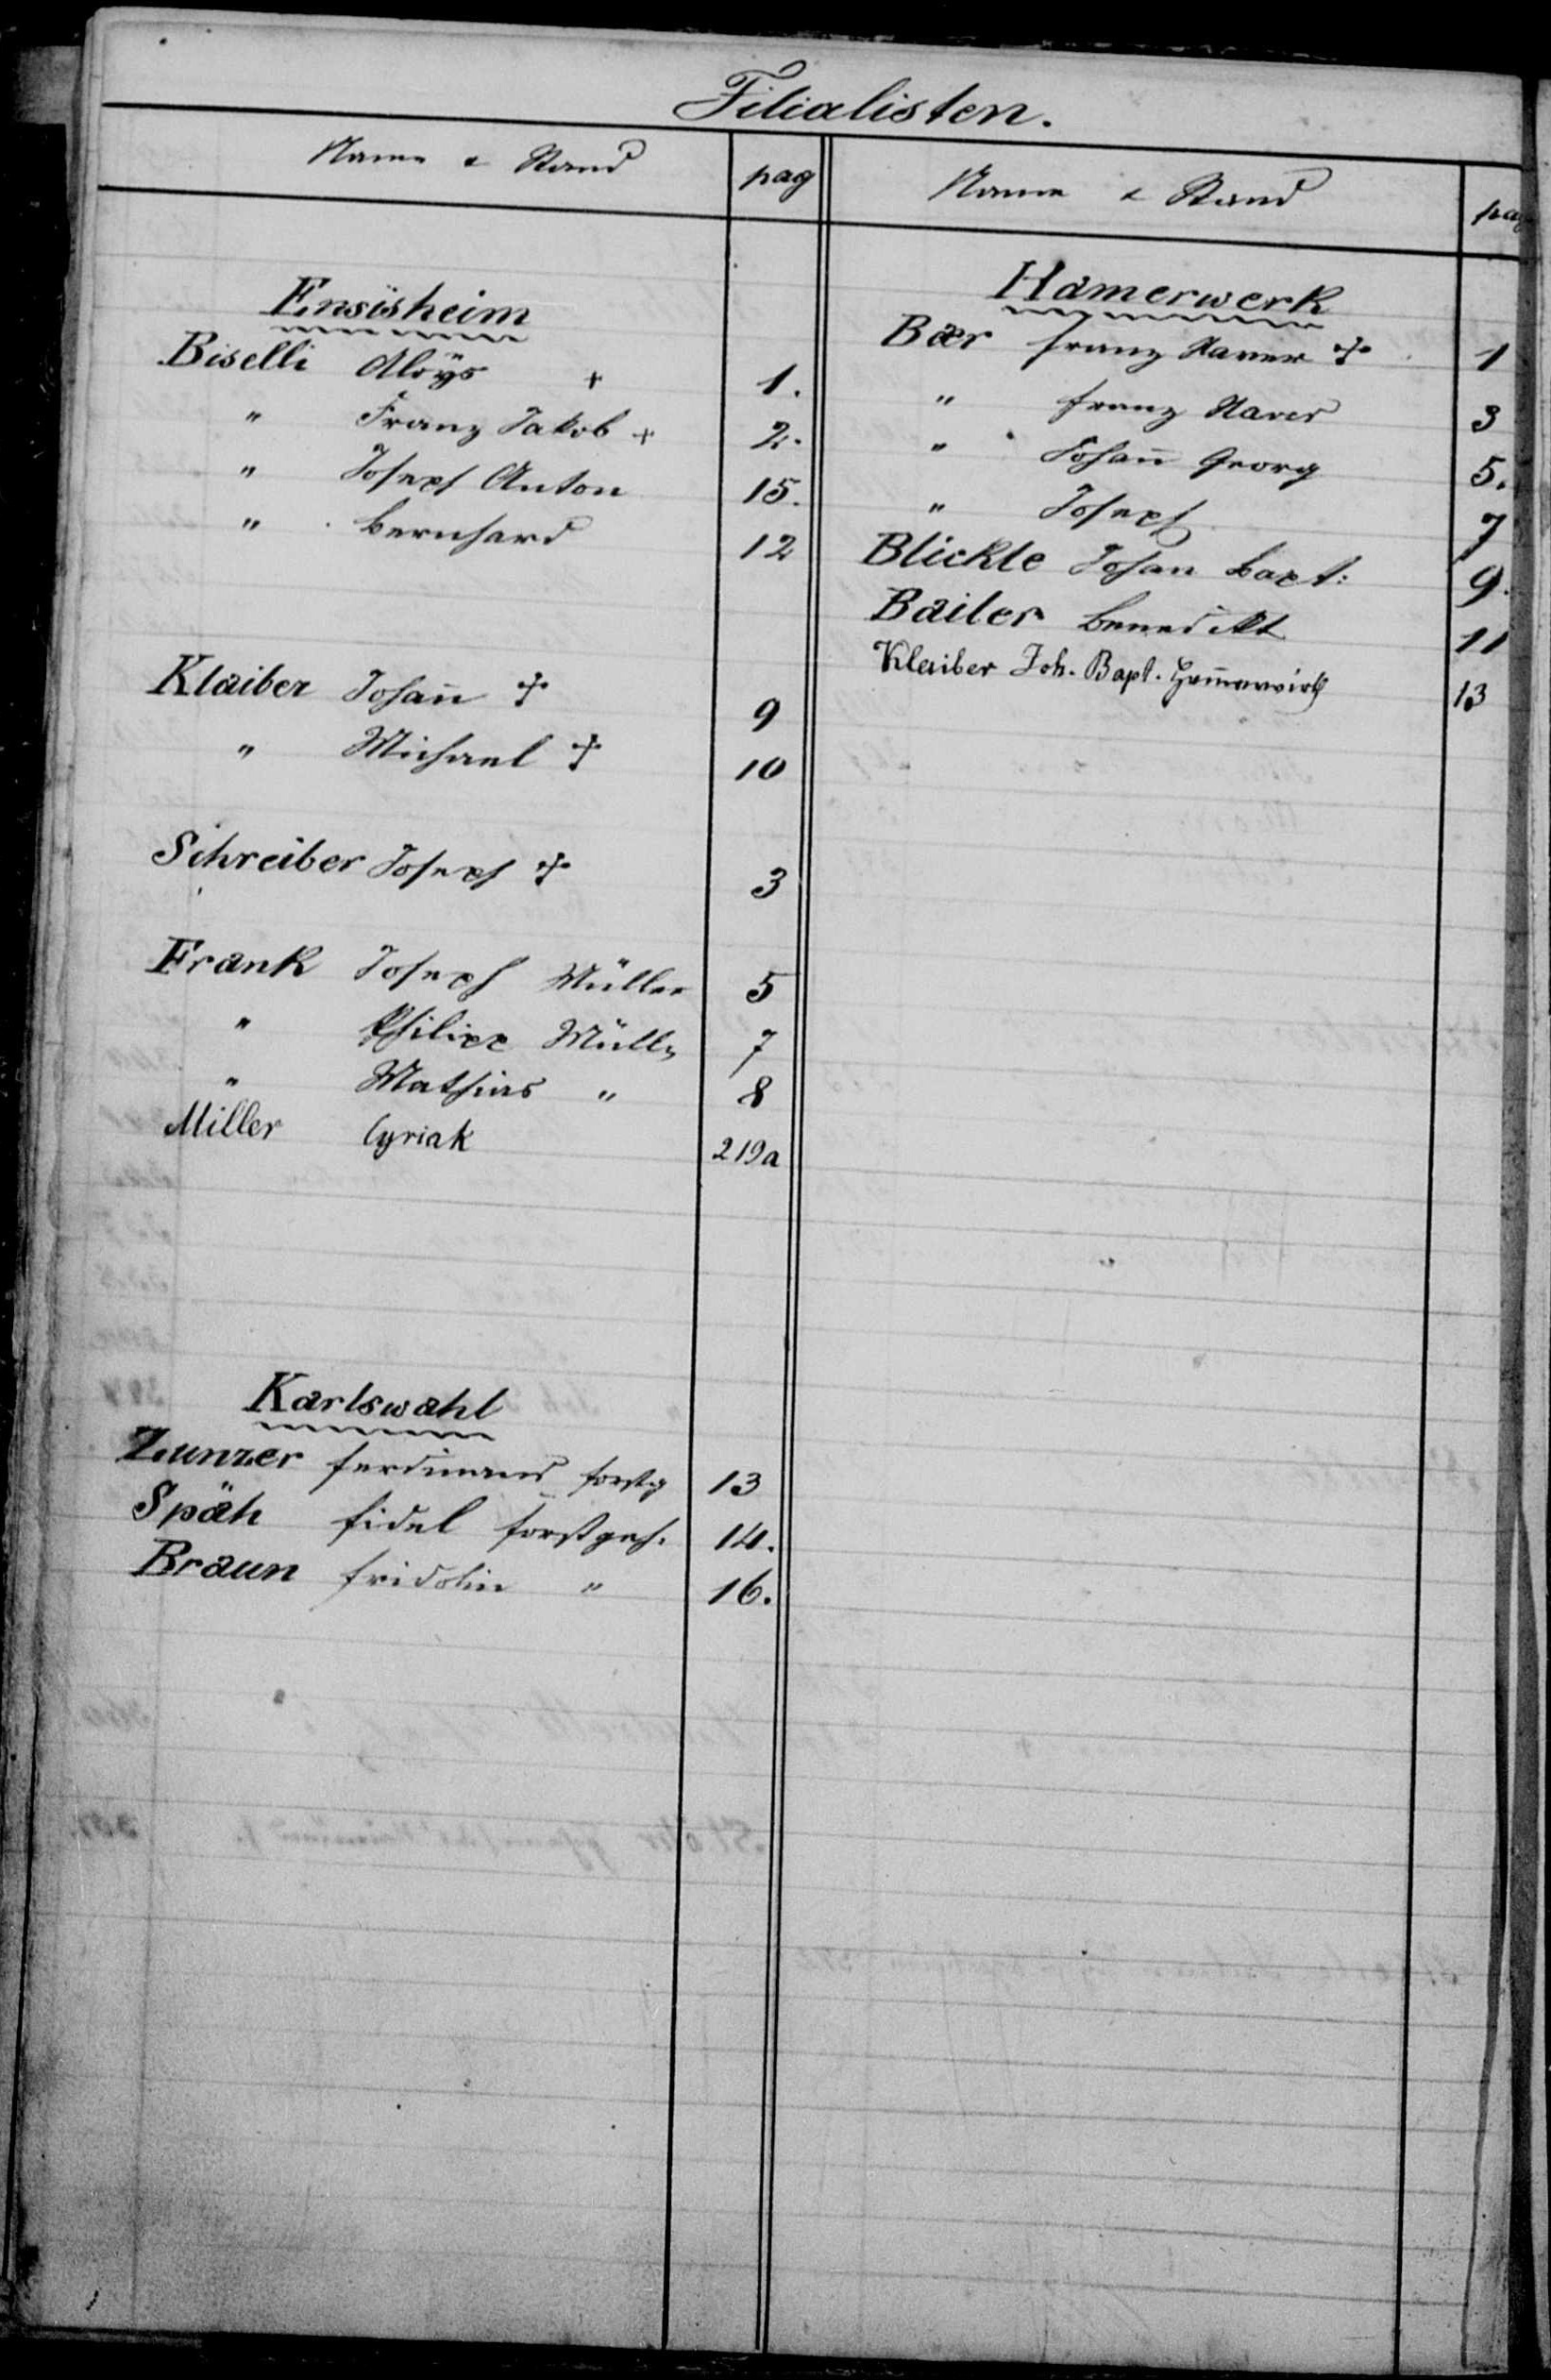 Filialisten.
Name & Stand pag
Ensisheim
Biselli Aloÿs + 1.
" Franz Jakob + 2.
" Joseph Anton 15.
" Bernhard 12
Klaiber Johañ † 9
" Michael † 10
Schreiber Joseph † 3
Frank Joseph Müller 5
" Philipp Müller 7
" Mathias " 8
Miller Cyriak 219a
Karlswahl
Zunzer Ferdinand Forstg 13
Späh Fidel Forstgeh. 14.
Braun Fridolin " 16.
Name & Stand pag
Hamerwerk
Bær Franz Xaver † 1
" Franz Xaver 3
" Johañ Georg 5.
" Joseph 7
Blickle Johan Bapt: 9.
Bailer Benedikt 11
Klaiber Joh. Bapt. Ham̃erwirth 13